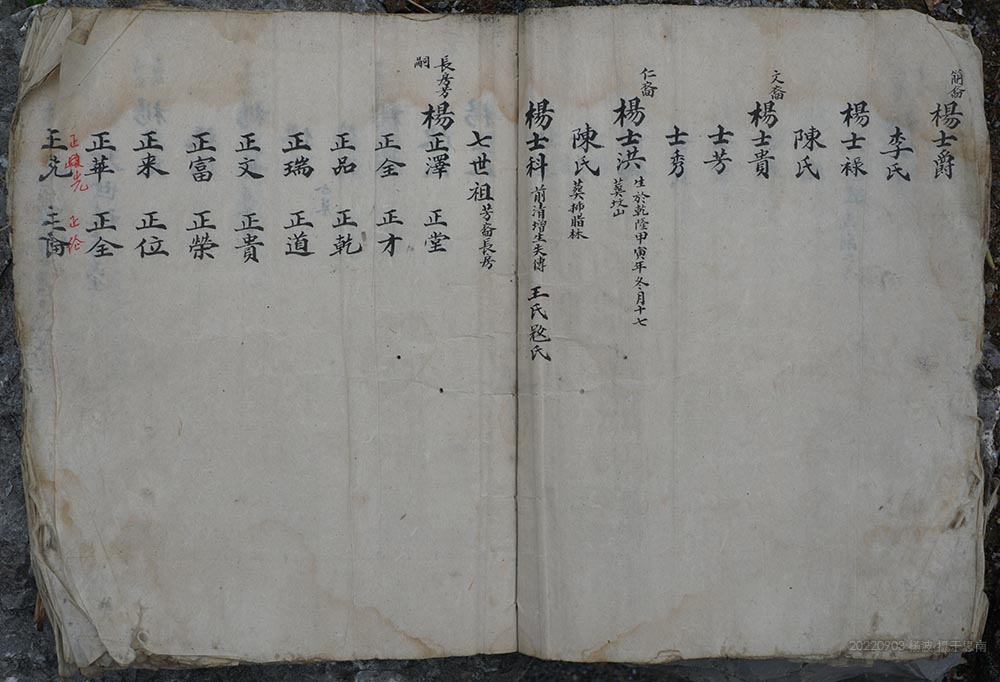 簡裔
楊士爵
李氏
楊士祿
陳氏
文裔
楊士貴
士芳
士秀
仁裔
楊士洪 生於乾隆甲寅年冬月十七 葬坟山
陳氏 葬柿腊林
楊士科 前清增生夫傳 王氏 氏
七世祖 芳裔長房
長房芳嗣
楊正澤 正堂
正全 正才
正品 正乾
正瑞 正道
正文 正貴
正富 正榮
正來 正位
正華 正全
正先 正倫
20220903 楊波 攝于思南